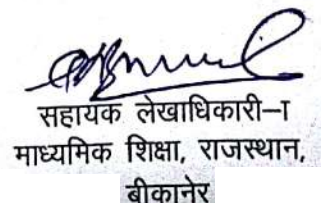 सहायक लेखाधिकारी–I
माध्यमिक शिक्षा, राजस्थान,
बीकानेर